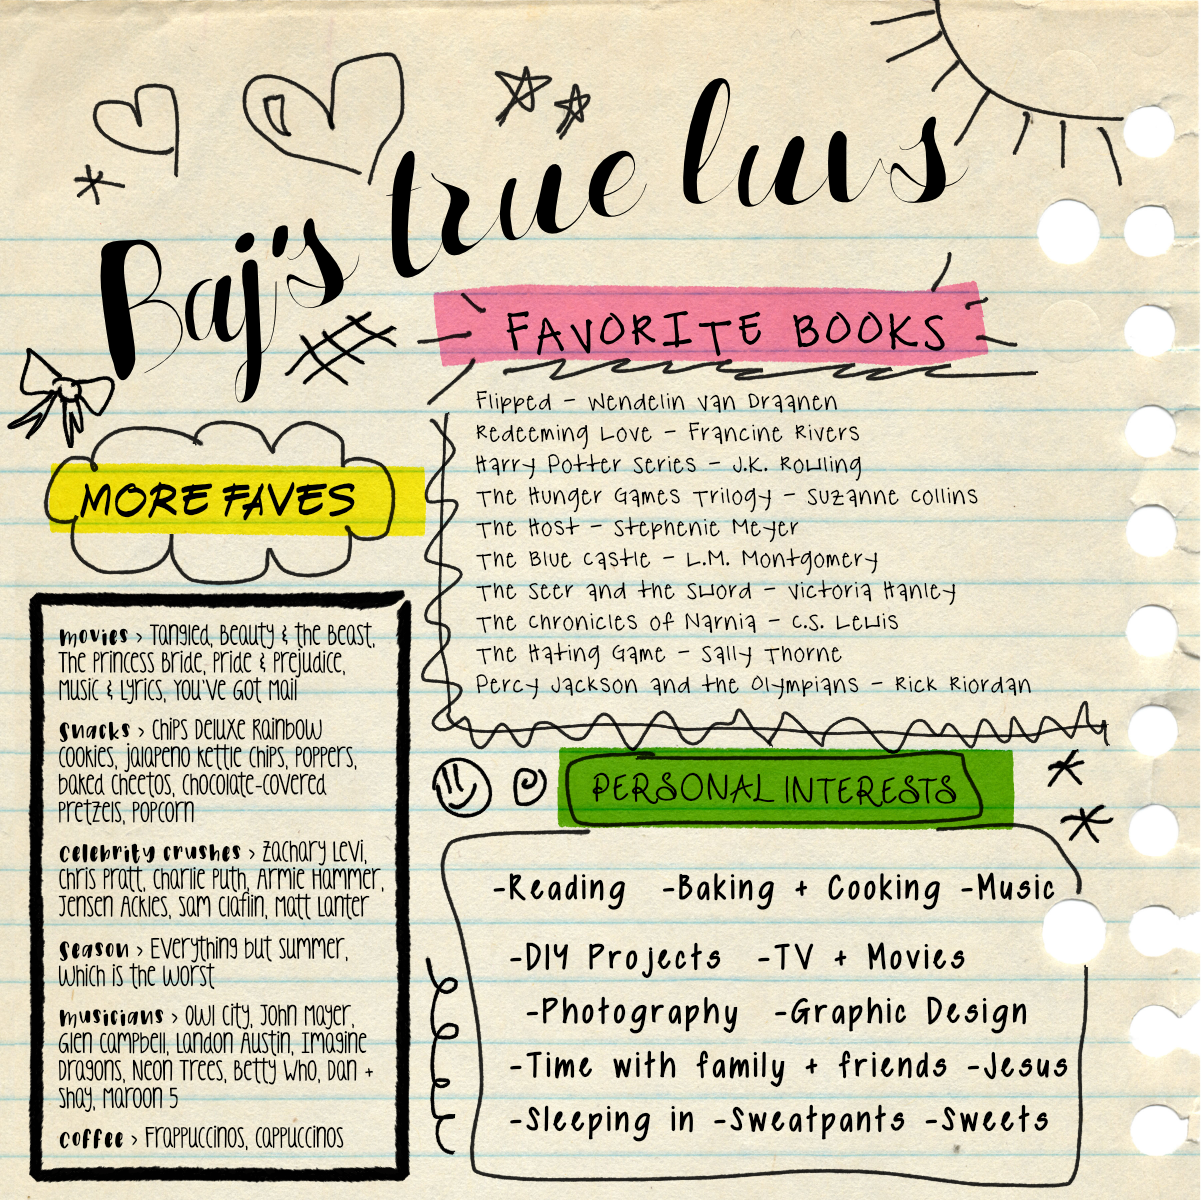 Baj's true luvs
FAVORITE BOOKS
Flipped - Wendelin Van Draanen
Redeeming Love - Francine Rivers
Harry Potter Series - J.K. Rowling
The Hunger Games Trilogy - Suzanne Collins
The Host - Stephenie Meyer
The Blue Castle - L.M. Montgomery
The Seer and the Sword - Victoria Hanley
The Chronicles of Narnia - C.S. Lewis
The Hating Game - Sally Thorne
Percy Jackson and the Olympians - Rick Riordan
MORE FAVES
movies > Tangled, Beauty & the Beast,
The Princess Bride, Pride & Prejudice,
Music & Lyrics, You've Got Mail
snacks > Chips Deluxe Rainbow
Cookies, jalapeno kettle chips, poppers,
baked cheetos, chocolate-covered
pretzels, popcorn
celebrity crushes > Zachary Levi,
Chris Pratt, Charlie Puth, Armie Hammer,
Jensen Ackles, Sam Claflin, Matt Lanter
season > Everything but summer,
which is the worst
musicians > Owl City, John Mayer,
Glen Campbell, Landon Austin, Imagine
Dragons, Neon Trees, Betty Who, Dan +
Shay, Maroon 5
coffee > Frappuccinos, cappuccinos
PERSONAL INTERESTS
-Reading -Baking + Cooking -Music
-DIY Projects -TV + Movies
-Photography -Graphic Design
-Time with family + friends -Jesus
-Sleeping in -Sweatpants -Sweets